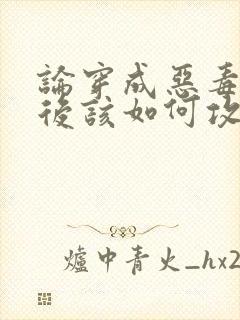 論穿成惡毒
後該如何攻
爐中青火_hx2